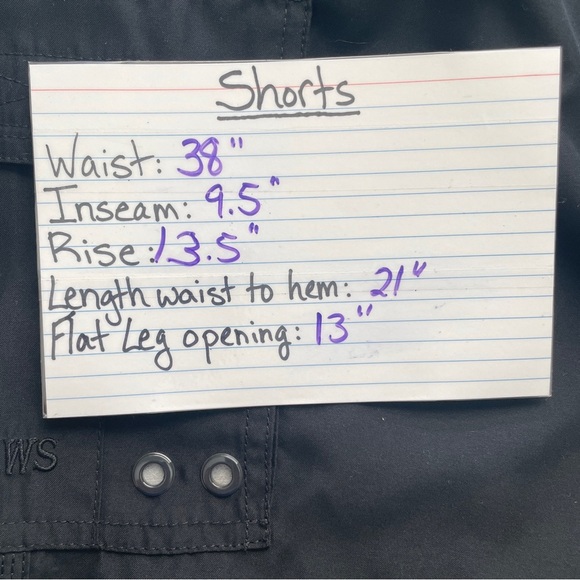 Shorts
Waist: 38"
Inseam: 9.5"
Rise: 13.5"
Length waist to hem: 21"
Flat Leg opening: 13"
WS